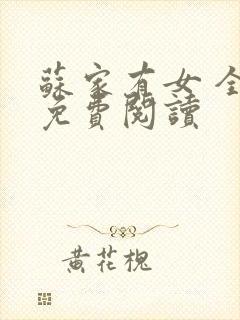 蘇家有女 全
免費閱讀
黃花槐